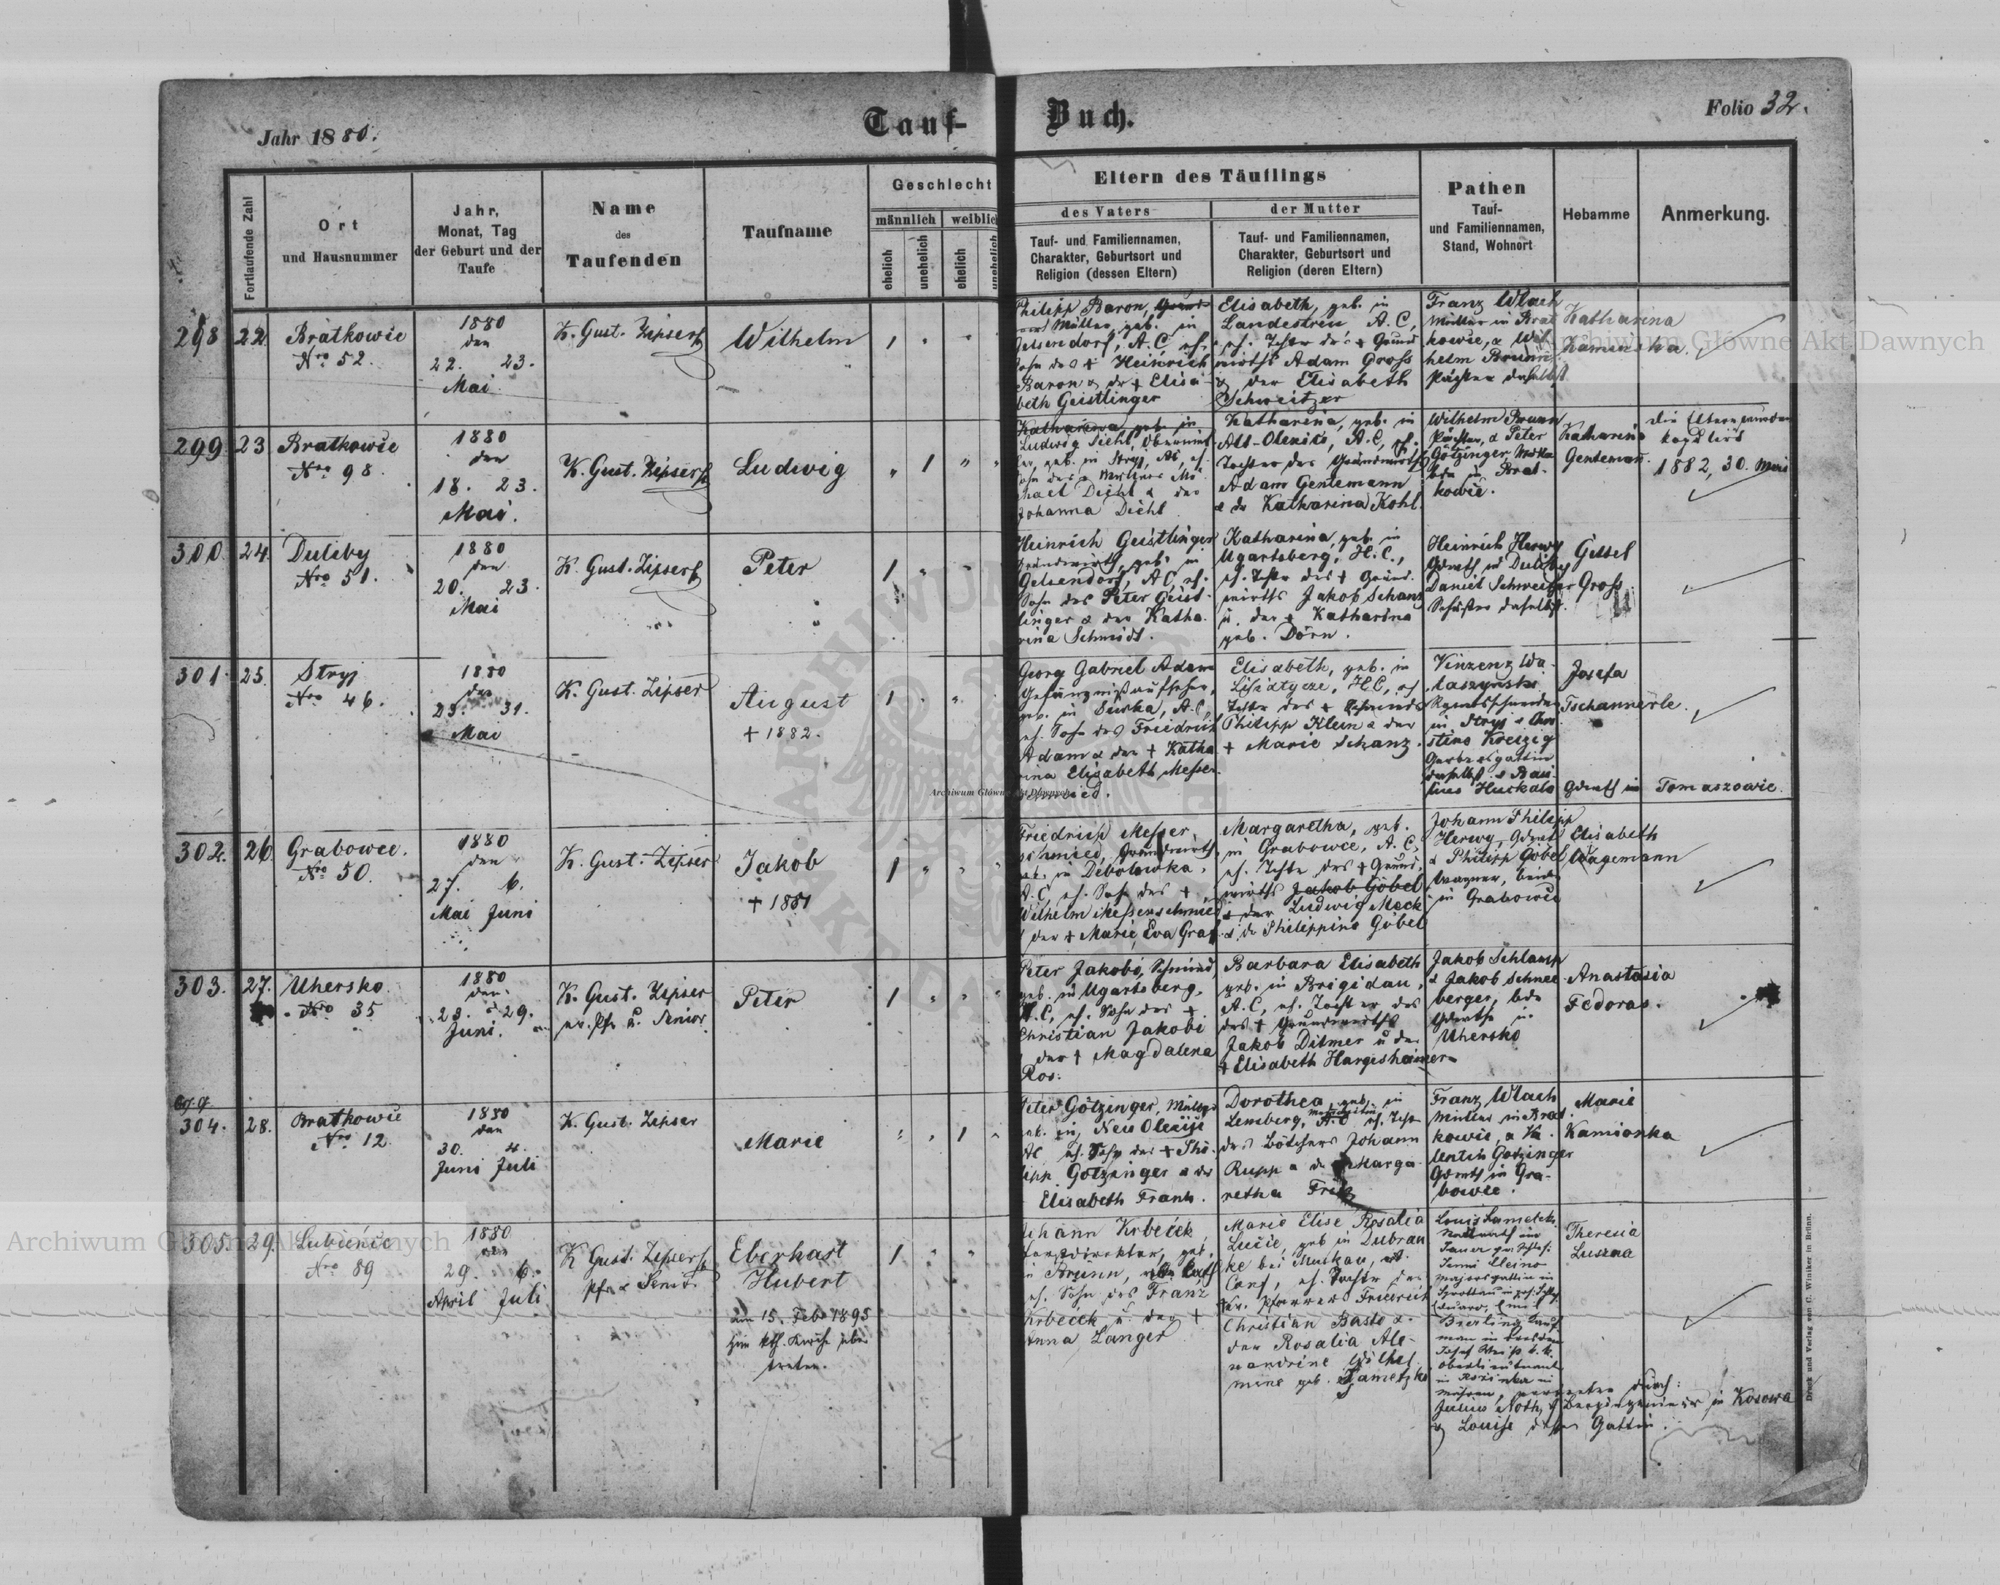 Jahr 1880.
Tauf-Buch.
Folio 32.
Fortlaufende Zahl
Ort
und Hausnummer
Jahr,
Monat, Tag
der Geburt und der
Taufe
Name
des
Taufenden
Taufname
Geschlecht
männlich
weiblich
ehelich
unehelich
ehelich
unehelich
Eltern des Täuflings
des Vaters
Tauf- und Familiennamen,
Charakter, Geburtsort und
Religion (dessen Eltern)
der Mutter
Tauf- und Familiennamen,
Charakter, Geburtsort und
Religion (deren Eltern)
Pathen
Tauf-
und Familiennamen,
Stand, Wohnort
Hebamme
Anmerkung.
298 22
Bratkowie
Nro 52.
1880
den
22. 23.
Mai
K. Gust. Zipser
Wilhelm
Philipp Baron,
Müller, geb. in
Gelsendorf, A.C. eh.
Sohn des + Heinrich
Baron & der + Elisa-
beth Geistlinger
Elisabeth, geb. in
Landestreu, A.C,
eh. Tochter des + Grund
wirths Adam Gross
& der Elisabeth
Schweitzer
Franz Wlach
Müller in Brat
kowie, & Wil
helm Brunn
Pächter daselbst
Katharina
Kamin ka.
299 23
Bratkowie
Nro 98.
1880
den
18. 23.
Mai.
K. Gust. Zipser
Ludwig
Katharina, geb. in
Ludwig Diehl,
geb. in Stryj, AC, eh.
Sohn des
Diehl & der
Johanna Diehl
Katharina, geb. in
Alt-Olexitz, A.C, eh.
Tochter des Grundwirths
Adam Gentemann
& der Katharina Kohl
Wilhelm Brunn
Pächter, & Peter
Götzinger,
bde in Brat-
kowie.
Katharina
Gentemann.
die Eltern wurden
kopulirt
1882, 30. Mai
300. 24.
Duliby
Nro 51.
1880
den
20. 23.
Mai
K. Gust. Zipser
Peter
Heinrich Geistlinger
Grundwirth, geb. in
Gelsendorf, AC, eh.
Sohn des Peter Geist-
linger & der Katha-
rina Schmidt.
Katharina, geb. in
Ugartsberg, H.C.,
eh. Tochter des + Grund-
wirths Jakob Schanz
u. der + Katharina
geb. Dörn.
Heinrich Herwy
Gdwrth in Duliby
Daniel Schweitzer
Schuster daselbst.
Gross.
301. 25.
Stryj
Nro 46.
1880
den
23. 31.
Mai
K. Gust. Zipser
August
+ 1882.
Georg Gabriel Adam
Gefängnißaufseher,
geb. in A.C,
eh. Sohn des Friedrich
Adam & der + Katha
rina Elisabeth Messer-
schmied.
Elisabeth, geb. in
H.C, eh
Tochter des +
Philipp Klein & der
+ Marie Schanz.
Vinzenz
in Stryj &
stine Kreizig
Gerbersgattin
daselbst &
Huckalo Gdwrth in Tomaszowie.
Josefa
Tschannerle.
302. 26
Grabowce.
Nro 50.
1880
den
27. 6.
Mai Juni
K. Gust. Zipser
Jakob
+ 1881
Friedrich Messer-
schmied, Grundwirth,
geb. in Debolowka,
A.C, eh. Sohn des +
Wilhelm Messerschmied
& der + Marie Eva Graf
Margaretha, geb.
in Grabowce, A.C,
eh. Tochter des + Grund-
wirths Jakob Göbel
& der Ludwig Meck
& der Philippine Göbel
Johann Philipp
Herwy, Gdwrth
& Philipp Göbel
Wagner, beide
in Grabowce
Elisabeth
Wagemann
303. 27.
Uhersko
Nro 35
1880
den
23. 29.
Juni.
K. Gust. Zipser
ev. Pfr u. Senior
Peter
Peter Jakobi, Schmied,
geb. in Ugartsberg,
H.C, eh. Sohn des +
Christian Jakobi
& der + Magdalena
Ros.
Barbara Elisabeth
geb. in Brigidau,
A.C, eh. Tochter des
des + Grundwirths
Jakob Ditmer u. der
+ Elisabeth Hargesheimer
Jakob Schlamp
& Jakob Schnee-
berger, bde
Gdwrthe in
Uhersko
Anastasia
Fedoras.
304. 28.
Bratkowie
Nro 12.
1880
den
30. 4.
Juni Juli
K. Gust. Zipser
Marie
Peter Götzinger, Müller
geb. in Neu Olexitz
AC eh. Sohn des + Phi-
lipp Götzinger & der
Elisabeth Frank.
Dorothea, geb. in
Lemberg, A.C eh. Tochter
des Böttchers Johann
Rupp & der Marga-
retha
Franz Wlach
Müller in Brat
kowie, & Va-
lentin Götzinger
Gdwrth in Gra-
bowce.
Marie
Kamionka
305. 29.
Lubience
Nro 89
1880
den
29. 6.
April Juli
K Gust. Zipser
Pfr & Senior
Eberhart
Hubert
am 15. Feb. 1895
zur kth. Kirche über-
treten.
Johann Krbecek
geb.
in Brünn,
eh. Sohn des Franz
Krbecek u. der +
Anna Langer
Marie Elise Rosalia
Lucie, geb in Dubrau
ke bei Muskau,
Conf, eh. Tochter des
ev. Pfarrers Friedrich
Christian Basto &
der Rosalia Ale-
xandrine Wilhel-
mine geb.
Louis
Majorsgattin in
Josef
Oberlieutenant
in
Mähren, vertreten durch:
Julius Noth, Bergingenieur in Kosowa
& Louise dessen Gattin.
Theresia
Luszna
Druck und Verlag von C. Winiker in Brünn.
Archiwum Główne Akt Dawnych
Archiwum Główne Akt Dawnych
Archiwum Główne Akt Dawnych